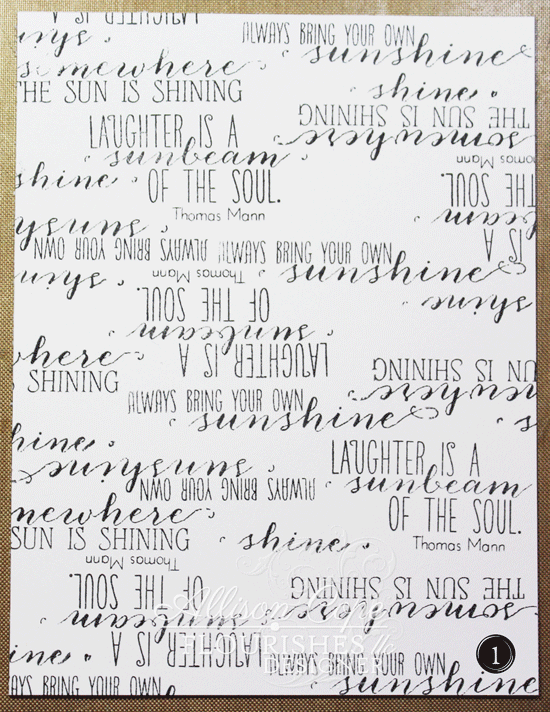 LAUGHTER IS A
ALWAYS BRING YOUR OWN
sunshine
shine
somewhere
THE SUN IS SHINING
shine
THE SUN IS SHINING
somewhere
LAUGHTER IS A
sunbeam
OF THE SOUL.
Thomas Mann
Thomas Mann
OF THE SOUL.
sunbeam
IS A
shine
sunshine
ALWAYS BRING YOUR OWN
ALWAYS BRING YOUR OWN
sunshine
shine
shine
Thomas Mann
OF THE SOUL.
sunbeam
LAUGHTER IS A
somewhere
SHINING
SUN IS SHINING
somewhere
ALWAYS BRING YOUR OWN
sunshine
shine
sunshine
ALWAYS BRING YOUR OWN
LAUGHTER IS A
sunbeam
OF THE SOUL.
Thomas Mann
somewhere
SUN IS SHINING
shine
Thomas Mann
OF THE SOUL.
sunbeam
LAUGHTER IS A
THE SUN IS SHINING
somewhere
Allison Cope
FLOURISHES
DESIGNER
ALWAYS BRING YOUR OWN
sunshine
shine
1